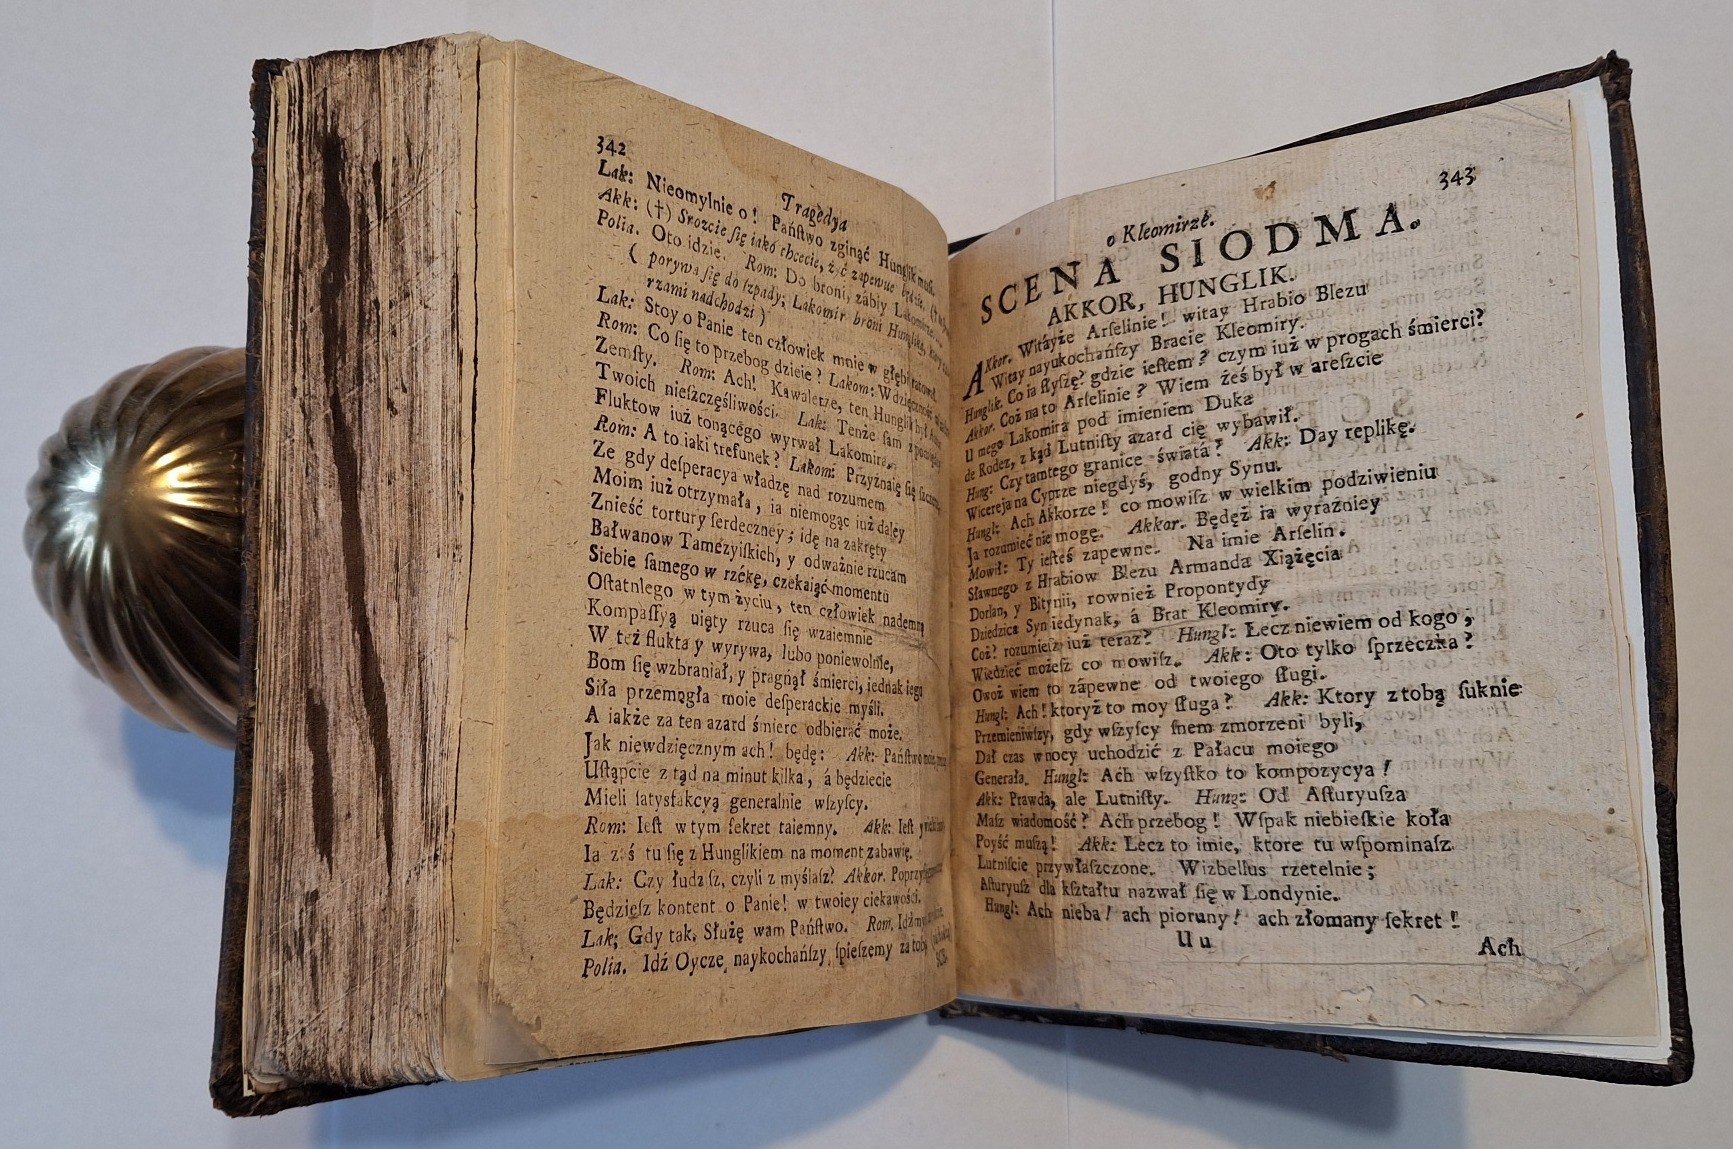 342
Tragedya
Lak: Nieomylnie o! Państwo zginąć Hunglik musi.
Akk: (†) Srozcie ſię iako chcecie, żyć zapewne będzie.
Polia. Oto idzie. Rom: Do broni, zábiy Lakomirze,
( porywa ſię do ſzpady; Lakomir broni Hunglika,
rzami nadchodzi )
Lak: Stoy o Panie ten człowiek mnie w głębi ratował.
Rom: Co ſię to przebog dzieie? Lakom: Wdzięczność
Zemſty. Rom: Ach! Kawalerze, ten Hunglik był
Twoich nieſzczęśliwości. Lak: Tenże ſam z pomiędzy
Fluktow iuż tonącego wyrwał Lakomira.
Rom: A to iaki trefunek? Lakom: Przyznaię ſię
Ze gdy deſperacya władzę nad rozumem
Moim iuż otrzymała, ia niemogąc iuż daley
Znieść tortury ſerdeczney; idę na zakręty
Bałwanow Tamezyiſkich, y odważnie rzucam
Siebie ſamego w rzékę, czekaiąc momentu
OſtatnIego w tym życiu, ten człowiek nademną
Kompaſſyą uięty rzuca ſię wzaiemnie
W też flukta y wyrywa, lubo poniewolnie,
Bom ſię wzbraniał, y pragnął śmierci, iednak iego
Siła przemogła moie deſperackie myśli.
A iakże za ten azard śmierc odbierać może.
Jak niewdzięcznym ach! będę: Akk: Państwo
Uſtąpcie z tąd na minut kilka, á będziecie
Mieli ſatysfakcyą generalnie wſzyſcy.
Rom: Ieſt w tym ſekret taiemny. Akk: Ieſt y
Ia z:ś tu ſię z Hunglikiem na moment zabawię.
Lak: Czy łudzisz, czyli z myślasz? Akkor.
Będzieſz kontent o Panie! w twoiey ciekawości.
Lak; Gdy tak, Służę wam Państwo. Rom,
Polia. Idź Oycze naykochańſzy ſpieſzemy za tobą
343
o Kleomirze.
SCENA SIODMA.
AKKOR, HUNGLIK.
AKkor. Witáyże Arſelinie! witay Hrabio Blezu
Witay naykochańſzy Bracie Kleomiry.
Hunglik. Co ia ſłyſzę? gdzie ieſtem? czym iuż w progach śmierci?
Akkor. Coż na to Arſelinie? Wiem żeś był w areſzcie
U mego Lakomira pod imieniem Duka
de Rodez, z kąd Lutniſty azard cię wybawił.
Hung: Czy tamtego granice świata? Akk: Day replikę.
Wicereja na Cyprze niegdyś, godny Synu.
Hungl: Ach Akkorze! co mowiſz w wielkim podziwieniu
Ja rozumieć nie mogę. Akkor. Będęż ia wyraźniey
Mowił: Ty ieſteś zapewne. Na imie Arſelin.
Sławnego z Hrabiow Blezu Armanda Xiążęcia
Dorlan, y Bitynii, rownież Propontydy
Dziedzica Syn iedynak, á Brat Kleomiry.
Coż? rozumieſz iuż teraz? Hungl: Lecz niewiem od kogo;
Wiedzieć możeſz co mowiſz. Akk: Oto tylko ſprzeczka?
Owoż wiem to zápewne od twoiego ſługi.
Hungl: Ach! ktoryż to moy ſługa? Akk: Ktory z tobą ſuknie
Przemieniwſzy, gdy wſzyſcy ſnem zmorzeni byli,
Dał czas w nocy uchodzić z Pałacu moiego
Generała. Hungl: Ach wſzyſtko to kompozycya!
Akk: Prawda, ale Lutniſty. Hung: Od Aſturyuſza
Masz wiadomość? Ach przebog! Wſpak niebieſkie koła
Poyść muszą! Akk: Lecz to imie, ktore tu wſpominasz
Lutniście przywłaszczone. Wizbellus rzetelnie;
Aſturyusz dla kształtu nazwał ſię w Londynie.
Hungl: Ach nieba! ach pioruny! ach złomany ſekret!
U u
Ach